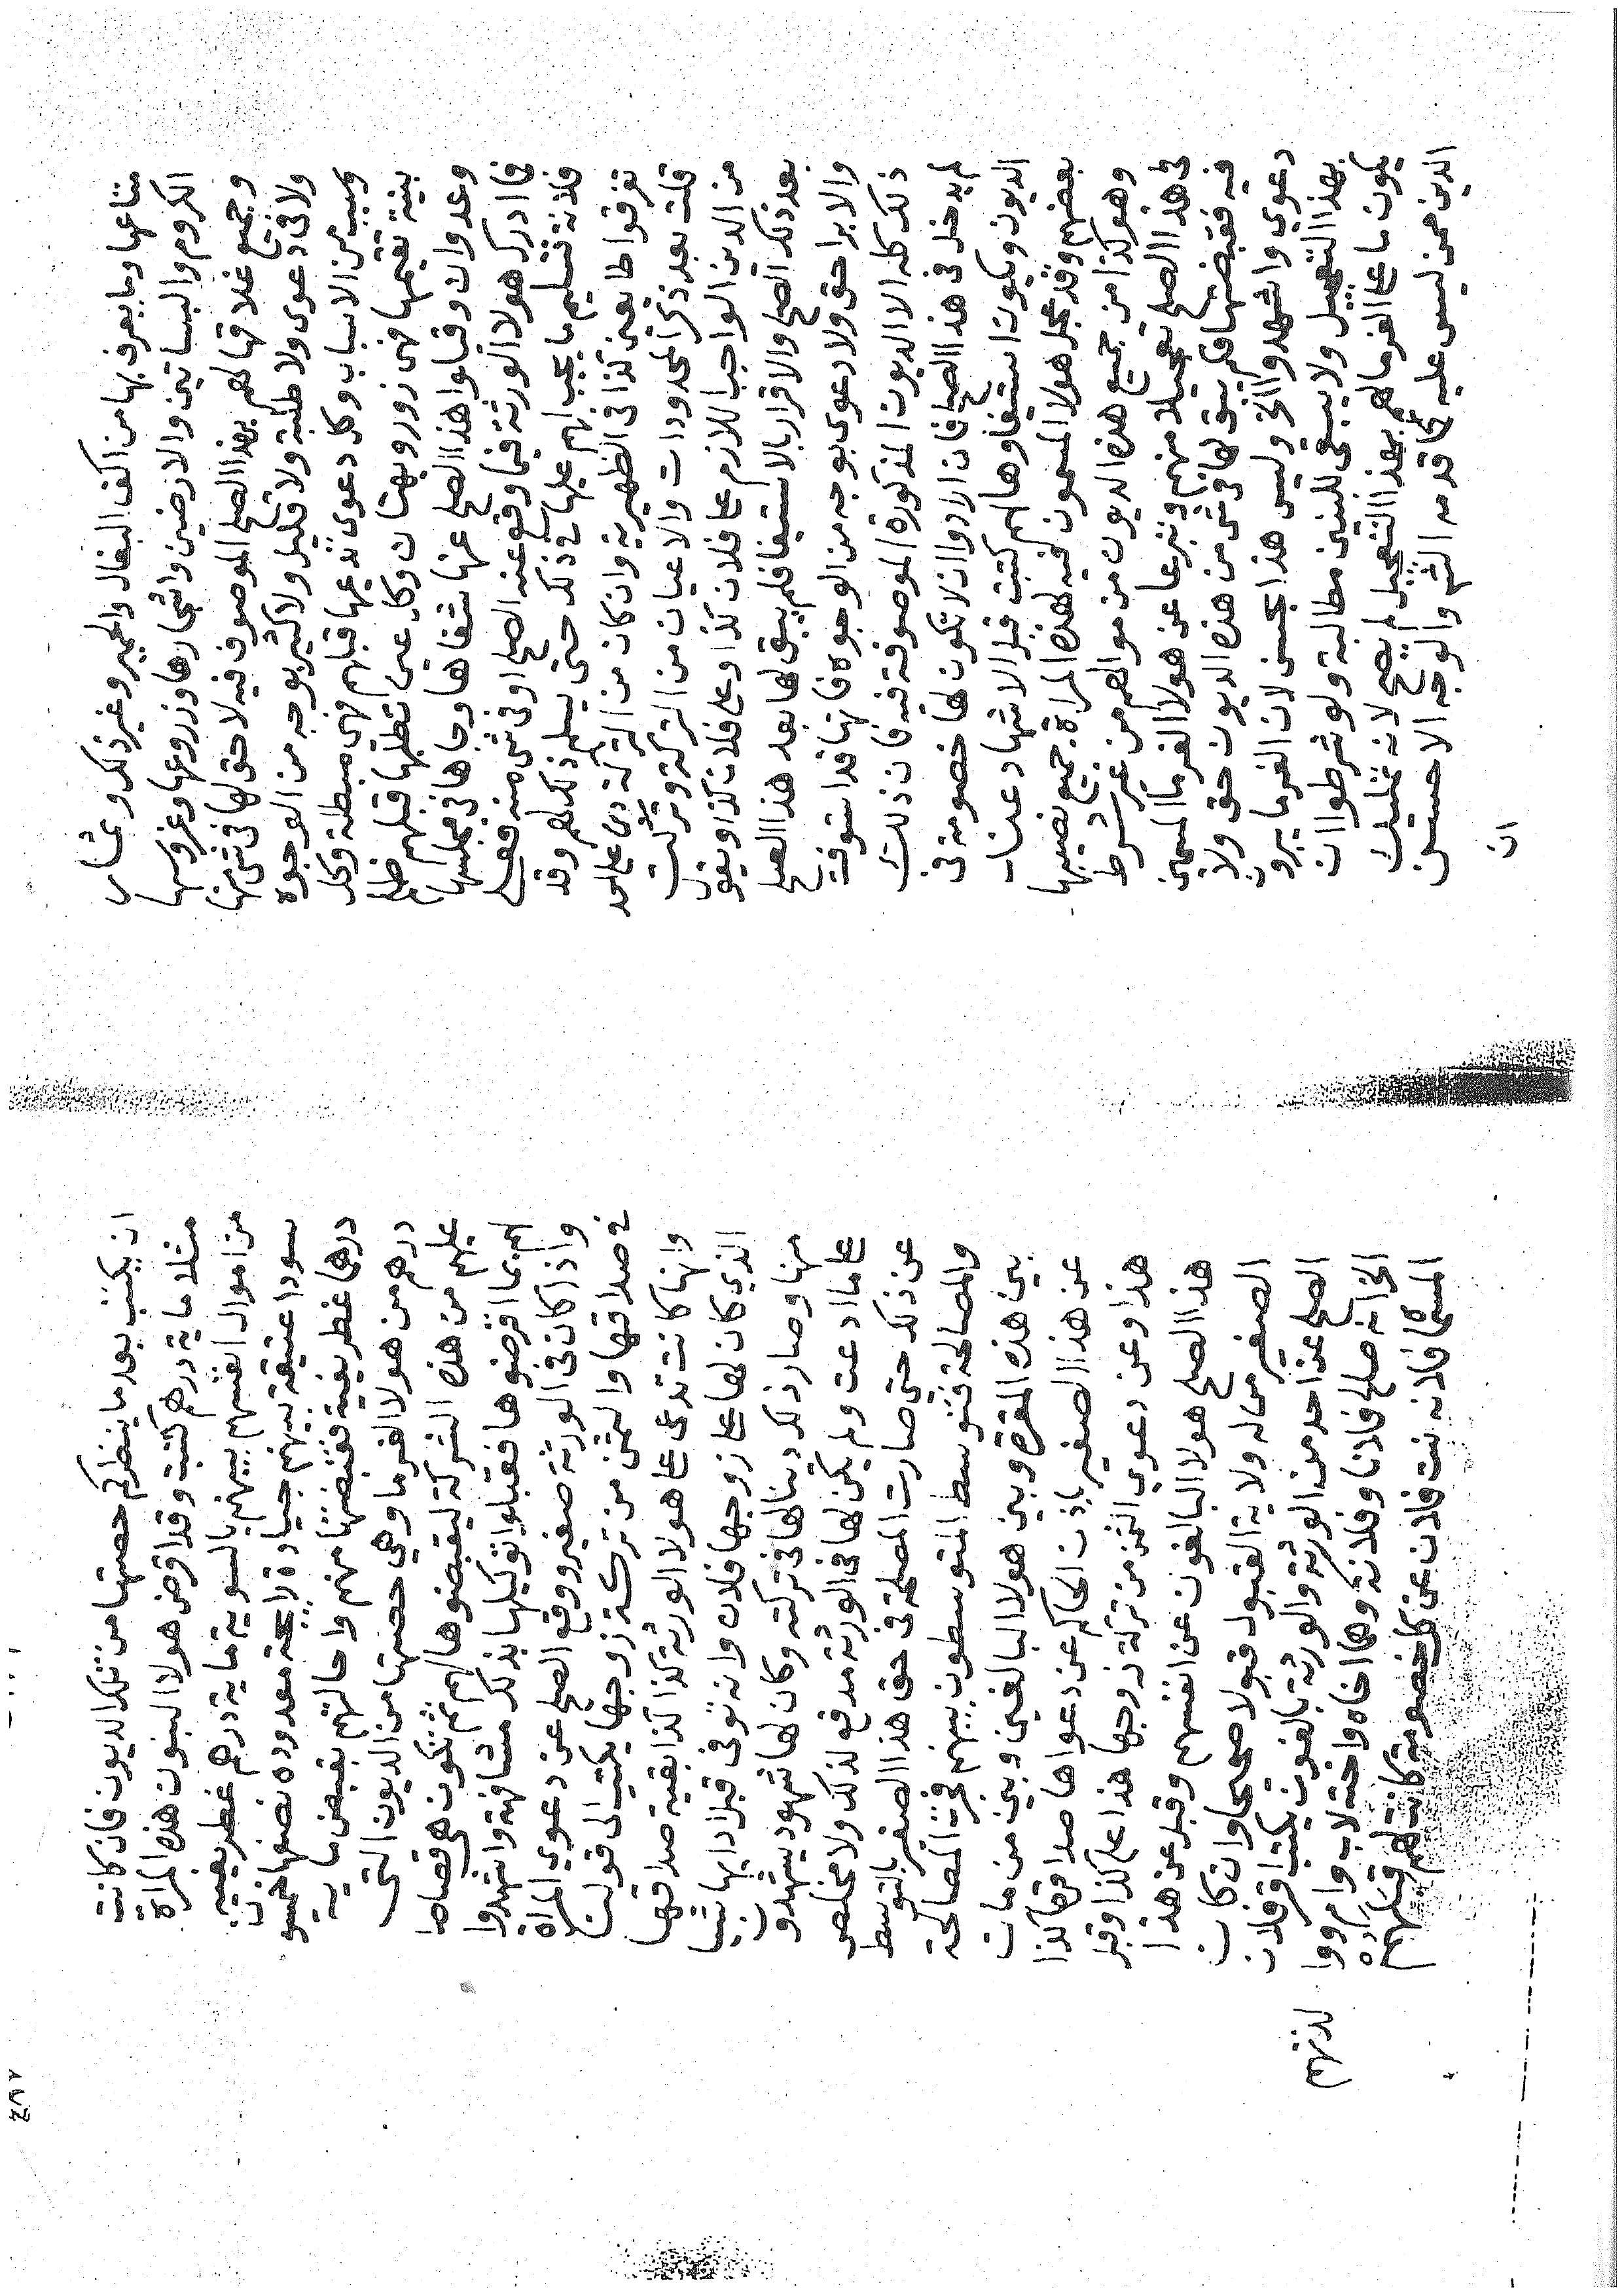 متاعها وما يعرف بها من اكف البغال والحمير وغير ذلك وثمار
الكروم والبساتين والارضين واشجارها وزروعها وغروسها
وجميع غلاتها لهم بهذا الصلح الموصوف فيه لا حق لها في شي منها
ولا في دعوى ولا طلبة ولا قليل ولا كثير بوجه من الوجوه
وسبب من الاسباب وكل دعوى تدعيها قبلهم فهي مبطلة وكل
بينة تقيمها فهي زور وبهتان وكل يمين تطلبها قبلهم ظلم
وعدوان وقبلوا هذا الصلح عنها شفاها وجاها في مجلسها
فما ادرك هولا الورثة فيما وقع عنه الصلح او في شي منه فعلى
فلانة تسليم ما يجب لهم عليها في ذلك حتى يسلم ذلك لهم وقد
تفرقوا طايعين كذا في الظهيرية وان كان من التركة دين على احد
قلت بعد ذكر المحدودات والاعيان من التركة وتركت
من الدين الواجب اللازم على فلان كذا وعلى فلان كذا ويقول
بعد ذكر الصلح والاقرار بالاستيفا فلم يبق لها بعد هذا الصلح
والابرا حق ولا دعوى بوجه من الوجوه فانها قد استوفت
ذلك كله الا الديون المذكورة الموصوفة فيه فان ذلك
لم يدخل في هذا الصلح فان ارادوا ان لا تكون لها خصومة في
الديون ويكون استيفاوها لهم كتبت قبل الاشهاد عنا
بعضهم وقد عجل هولا المسمون فيه لهذه المراة جميع نصيبها
وهو كذا من جميع هذه الديون من موالهم من غير شرط
في هذا الصلح تعجيلا منهم وتبرعا عن هولا الغرما المسمين
فيه فقبضتها فلم يبق لها في شي من هذه الديون حق ولا
دعوى واشهدوا الخ وليس هذا بحسن لان الغرما يبرون
بهذا التعجيل ولا يبقى للبنين مطالبة ولو شرطوا ان
يكون ما على الغرما لهم بهذا التعجيل لم يصح لانه تمليك
الدين ممن ليس عليه كما قدمه الشم والوجه الاحسن
ان
ان يكتب بعد ما ينظر كم حصتها من تلك الديون فان كانت
مثلا ماية درهم كتبت وقد اقرض هولا البنون هذه المراة
من اموال انفسهم بينهم بالسوية ماية درهم غطريفية
سودا عتيقة بينهم جيادة رايجة معدودة نصفها خمسون
درهما غطريفية فقبضتها منهم واحالتهم بقبض ماية
درهم من هولا الغرما وهي حصتها من الديون التي
عليهم من هذه التركة ليقبضوها لهم ثم تكون هي قصاصا
لهم بما اقرضوها فقبلوا توكيلها بذلك مشافهة واشهدوا
واذا كان في الورثة صغير ووقع الصلح عن دعوى المراة
في صداقها والثمن من تركة زوجها يكتب الى قولنا
وانها كانت تدعى على هولا الورثة كذا كذا بقية صداقها
الذي كان لها على زوجها فلان وانه توفى قبل اداية شيا
منها وصار ذلك دينا لها في تركته وكان لها شهود يشهدون
على ما ادعت ولم يكن لها في الورثة مدفع لذلك ولا مخلص
عن ذلك حتى صارت المصلحة في حق هذا الصغير بالتوسط
والمصالحة فتوسط المتوسطون بينهم فجرت المصالحة
بين هذه المقرة وبين هولا البالغين وبين من مات
عن هذا الصغير باذن الحاكم عن دعواها صداقها كذا
هذا وعن دعوى الثمن من تركة زوجها هذا على كذا وقبل
هذا الصلح هولا البالغون عن انفسهم وقبل عن هذا
الصغير من له ولاية القبول قبولا صحيحا وان كان
الصلح عن احد من الورثة والورثة بالغون يكتب اقر فلان
الخ انه صالح فلانا وفلانة وهما اخاه واخته لاب وام ووا
المسماة فلانة بنت فلان عن كل خصومة كانت لهم قبلهم
لدتهم